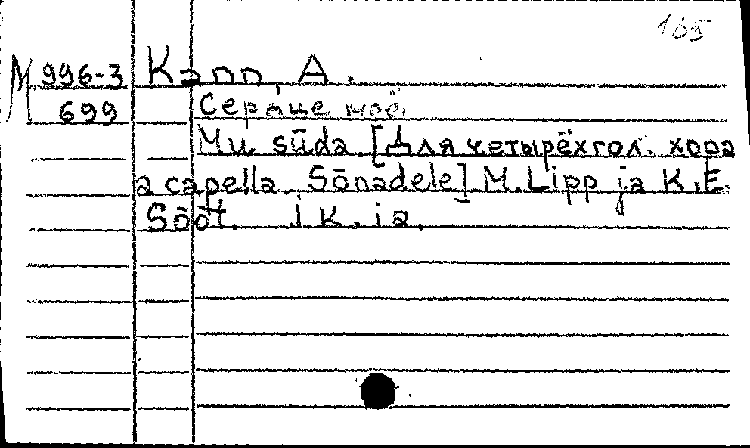 165
М 996-3 Капп, А.
699 Сердце моё.
Mu süda [Для четырёхгол. хора
a capella. Sõnadele] M. Lipp ja K.E.
Sööt. I k. ja.